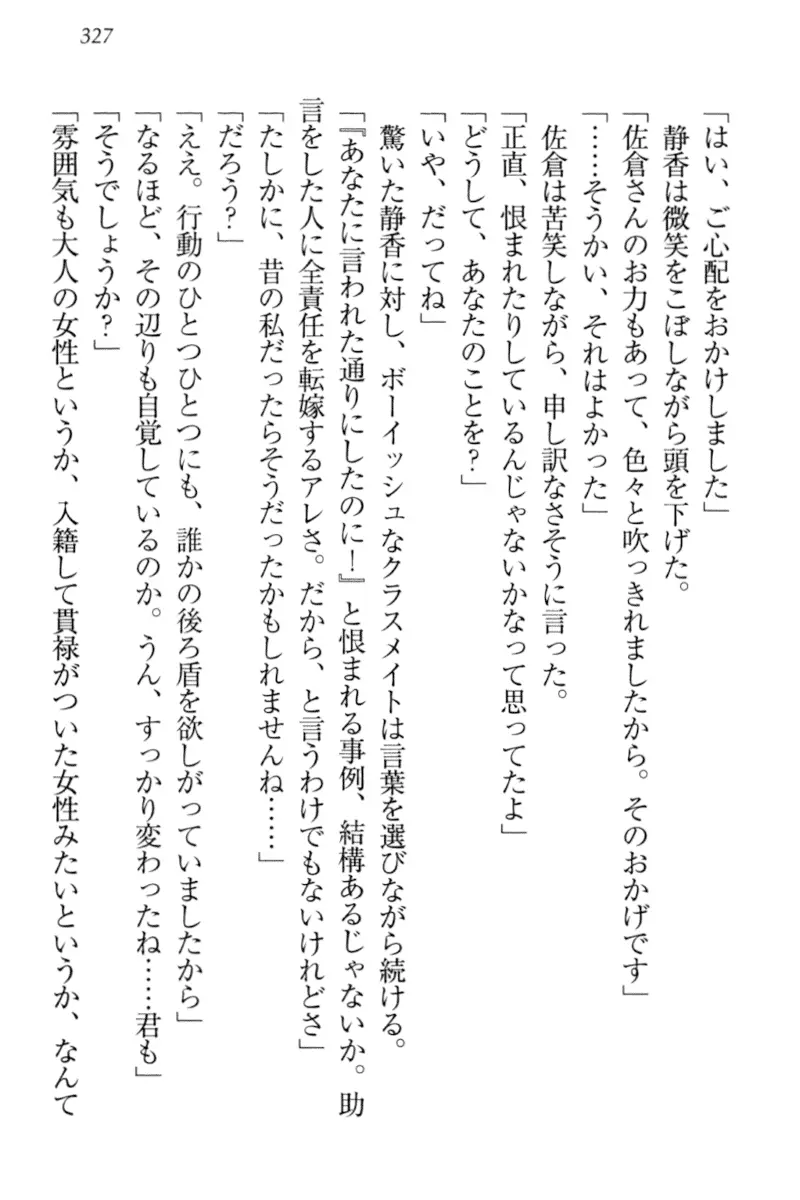 327
「はい、ご心配をおかけしました」
静香は微笑をこぼしながら頭を下げた。
「佐倉さんのお力もあって、色々と吹っきれましたから。そのおかげです」
「……そうかい、それはよかった」
佐倉は苦笑しながら、申し訳なさそうに言った。
「正直、恨まれたりしているんじゃないかなって思ってたよ」
「どうして、あなたのことを？」
「いや、だってね」
驚いた静香に対し、ボーイッシュなクラスメイトは言葉を選びながら続ける。
「『あなたに言われた通りにしたのに！』と恨まれる事例、結構あるじゃないか。助
言をした人に全責任を転嫁するアレさ。だから、と言うわけでもないけれどさ」
「たしかに、昔の私だったらそうだったかもしれませんね……」
「だろう？」
「ええ。行動のひとつひとつにも、誰かの後ろ盾を欲しがっていましたから」
「なるほど、その辺りも自覚しているのか。うん、すっかり変わったね……君も」
「そうでしょうか？」
「雰囲気も大人の女性というか、入籍して貫禄がついた女性みたいというか、なんて